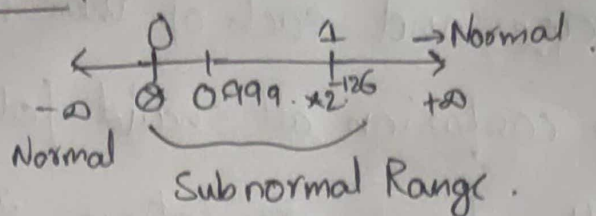 0 1 → Normal.
-∞ 0 0.999. × 2^-126 +∞
Normal
Subnormal Range.